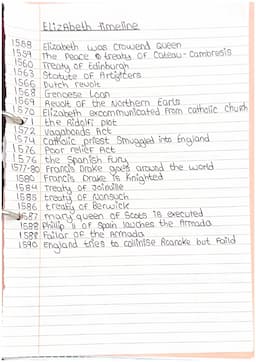 Elizabeth timeline
1558 Elizabeth was crowend queen
1559 The Peace & treaty of Cateau-Cambresis
1560 Treaty of Edinburgh
1563 Statute of Artificers
1566 Dutch revolt
1568 Genoese Loan
1569 Revolt of the Northern Earls
1570 Elizabeth excommunicated from catholic church
1 the Ridolfi plot
1572 Vagabonds Act
1574 Catholic priest Smuggled into England
1576 Poor relief Act
1576 the Spanish Fury
1577-80 Francis Drake goes around the world
1580 Francis Drake is Knighted
1584 Treaty of Joinville
1585 treaty of Nonsuch
1586 treaty of Berwick
1587 mary queen of Scots is executed
1588 Philip of Spain lauches the Armada
1588 Failur of the Armada
1590 England tries to collinise Roanoke but Faild